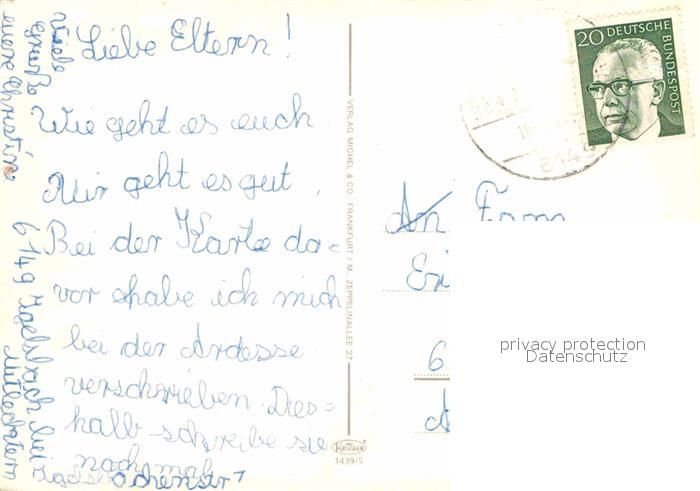 Liebe Eltern!
Wie geht es euch
Mir geht es gut,
Bei der Karte da=
vor ehabe ich mich
bei der Ardesse
verschrieben. Dies=
halb schreibe sie
nochmal
Viele
Grüße
euere Christine
6149 Igelsbach bei
VERLAG MICHEL & CO. FRANKFURT / M. ZEPPELINALLEE 27
KRÜGER
1439/5
20 DEUTSCHE BUNDESPOST
6149
An Fam
Eri
6
privacy protection
Datenschutz